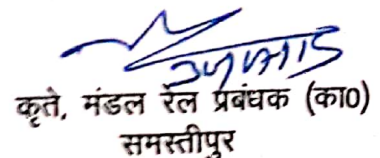 कृते, मंडल रेल प्रबंधक (का0)
समस्तीपुर